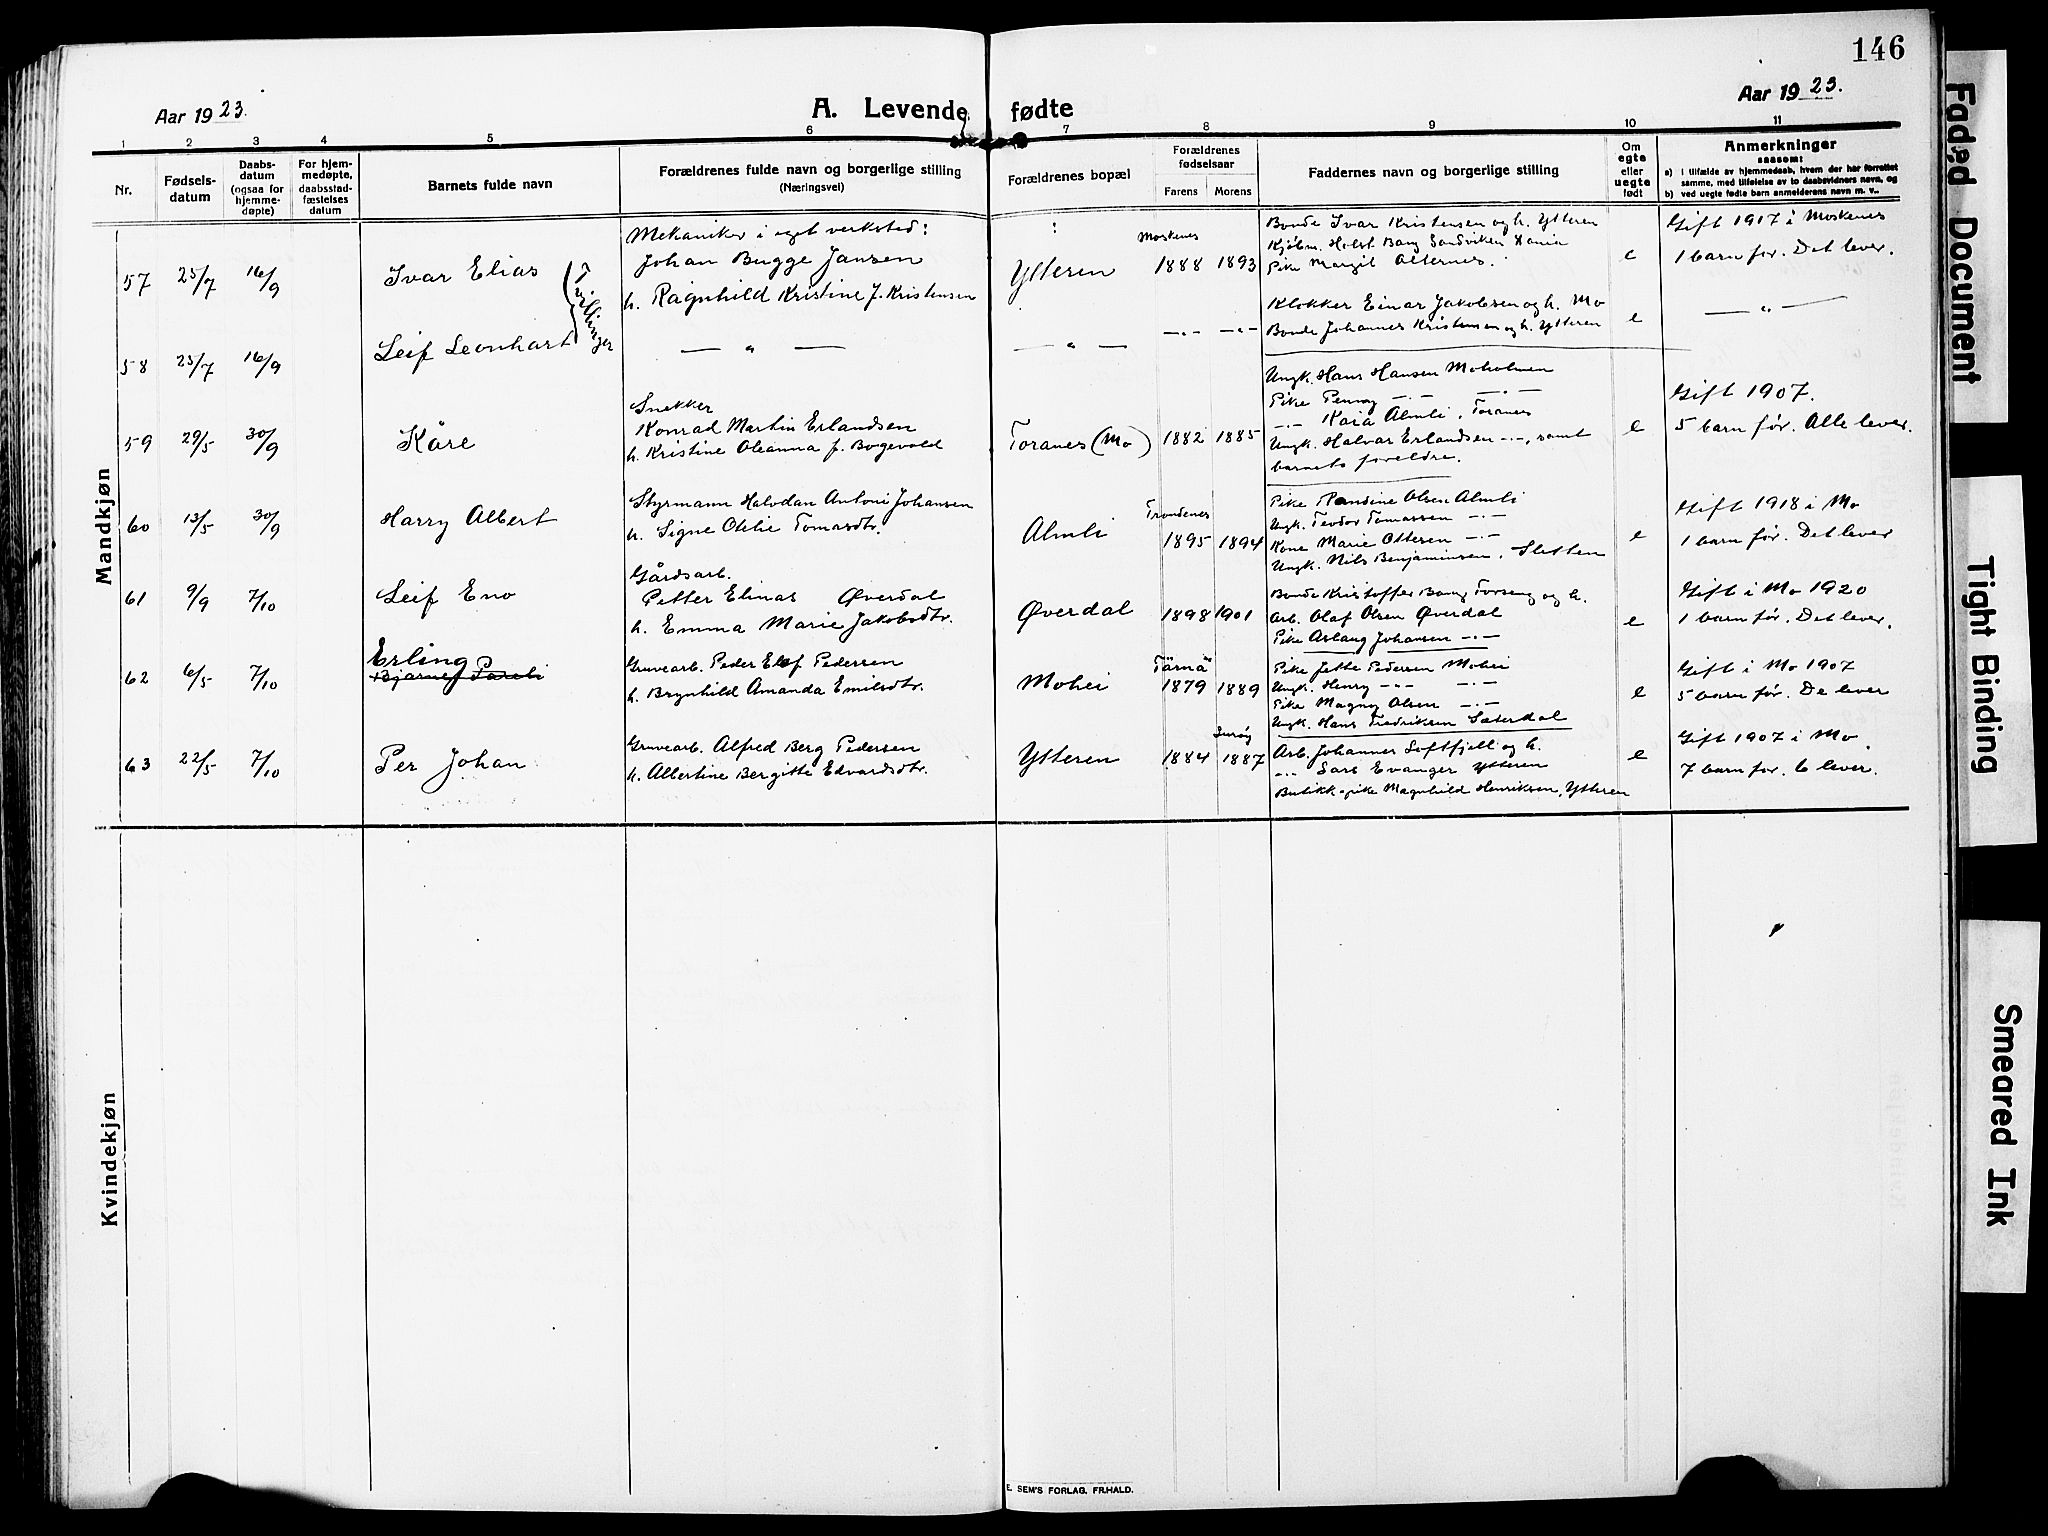 146
Aar 1923.
A. Levende fødte
Aar 1923.
1 2 3 4 5 6 7 8 9 10 11
Nr.
Fødsels-
datum
Daabs-
datum
(ogsaa for
hjemme-
døpte)
For hjem-
medøpte,
daabsstad-
fæstelses
datum
Barnets fulde navn
Forældrenes fulde navn og borgerlige stilling
(Næringsvei)
Forældrenes bopæl
Forældrenes
fødselsaar
Farens Morens
Faddernes navn og borgerlige stilling
Om
egte
eller
uegte
født
Anmerkninger
saasom:
a) i tilfælde av hjemmedaab, hvem der har forrettet
samme, med tilføielse av to daabsvidners navn, og
b) ved uegte fødte barn anmelderens navn m. v..
Mandkjøn
57 25/7 16/9 Ivar Elias
Tvillinger
Mekaniker i eget verksted:
Johan Bugge Jansen
h. Ragnhild Kristine f. Kristensen
Ytteren
Moskenes
1888 1893
Bonde Ivar Kristensen og h. Ytteren
Kjøbm. Holst Bang Sandviken Xania
Pike Margit Alternes.
e
Gift 1917 i Moskenes
1 barn før. Det lever.
58 25/7 16/9 Leif Leonhart
— " —
— " —
—"— —"—
Klokker Einar Jakobsen og h. Mo
Bonde Johannes Kristensen og h. Ytteren
e
— " —
59 29/5 30/9 Kåre
Snekker
Konrad Martin Erlandsen
h. Kristine Oleanna f. Bogevold
Toranes (Mo)
1882 1885
Ungk. Hans Hansen Moholmen
Pike Penny —"—
—"— Kaia Almli, Toranes
Ungk. Halvar Erlandsen —"—, samt
barnets foreldre.
e
Gift 1907.
5 barn før. Alle lever.
60 13/5 30/9 Harry Albert
Styrmann Halvdan Antoni Johansen
h. Signe Otelie Tomasdtr.
Almli
Trondenes
1895 1894
Pike Randine Olsen Almli
Ungk. Teodor Tomassen —"—
Kone Marie Ottersen —"—
Ungk. Nils Benjaminsen, Sletten
e
Gift 1918 i Mo
1 barn før. Det lever
61 9/9 7/10 Leif Eno
Gårdsarb.
Petter Elinas Øverdal
h. Emma Marie Jakobsdtr.
Øverdal
1898 1901
Bonde Kristoffer Bang Torseng og h.
Arb. Olaf Olsen Øverdal
Pike Aslaug Johansen —"—
e
Gift i Mo 1920
1 barn før. Det lever.
62 6/5 7/10 Erling P
Bjarne
Gruvearb. Peder Elof Pedersen
h. Brynhild Amanda Emilsdtr.
Mohei
Tärnä
1879 1889
Pike Jette Pedersen Mohei
Ungk. Henry —"— —"—
Pike Magny Olsen —"—
Ungk. Hans Fredriksen Sæterdal
e
Gift i Mo 1907
5 barn før. De lever
63 22/5 7/10 Per Johan
Gruvearb. Alfred Berg Pedersen
h. Albertine Bergitte Edvardsdtr.
Ytteren
1884 1887
Arb. Johannes Loftfjell og h.
—"— Lars Evanger Ytteren
Butikk-pike Magnhild Henriksen, Ytteren
e
Gift 1907 i Mo
7 barn før. 6 lever.
Kvindekjøn
E. SEM'S FORLAG, FR.HALD.
Faded Document
Tight Binding
Smeared Ink